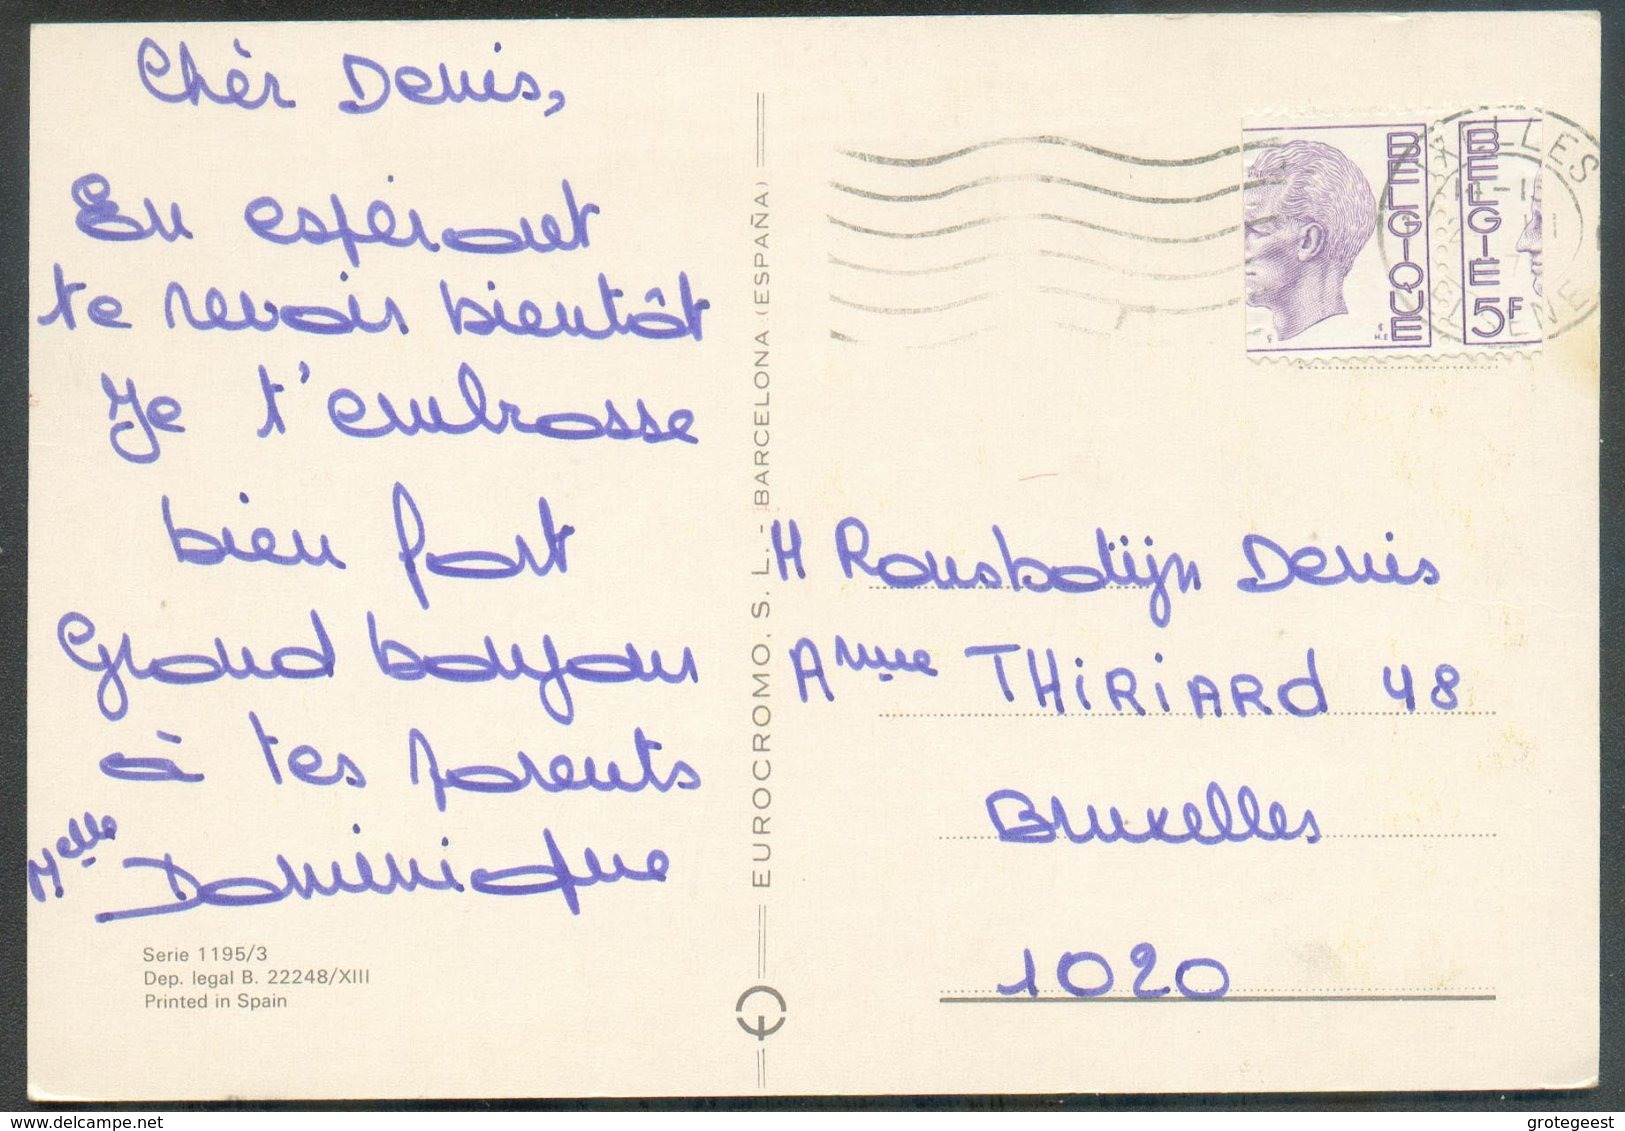 Chèr Denis,
En espérant
te revoir bientôt
Je t'embrasse
bien fort
Grand bonjour
à tes parents
Melle Dominique
Serie 1195/3
Dep. legal B. 22248/XIII
Printed in Spain
EUROCROMO. S. L. - BARCELONA (ESPAÑA)
BELGIQUE
BELGIE 5F
M Ronsbotijn Denis
THIRIARD 48
Bruxelles
1020
grotegeest